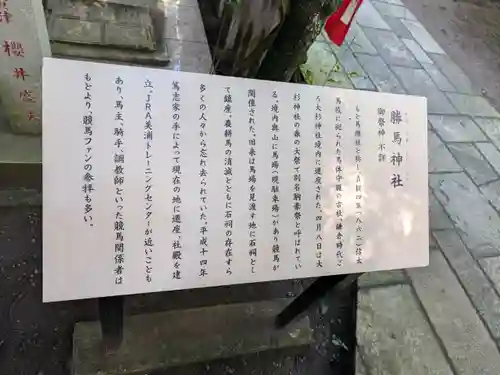 勝馬神社
御祭神 不詳
もと馬櫪社と称し貞観四年（八六二）信太
馬牧に祀られた馬体守護の古社。鎌倉時代ご
ろ大杉神社境内に遷座された。四月八日は大
杉神社の春の大祭で別名駒素祭と呼ばれてい
る。境内奥山に馬場（現駐車場）があり競馬が
開催された。旧来は馬場を見渡す地に石祠とし
て鎮座。農耕馬の消滅とともに石祠の存在すら
多くの人々から忘れ去られていた。平成十四年
篤志家の手によって現在の地に遷座。社殿を建
立。JRA美浦トレーニングセンターが近いことも
あり、馬主、騎手、調教師といった競馬関係者は
もとより、競馬ファンの参拝も多い。
櫻井